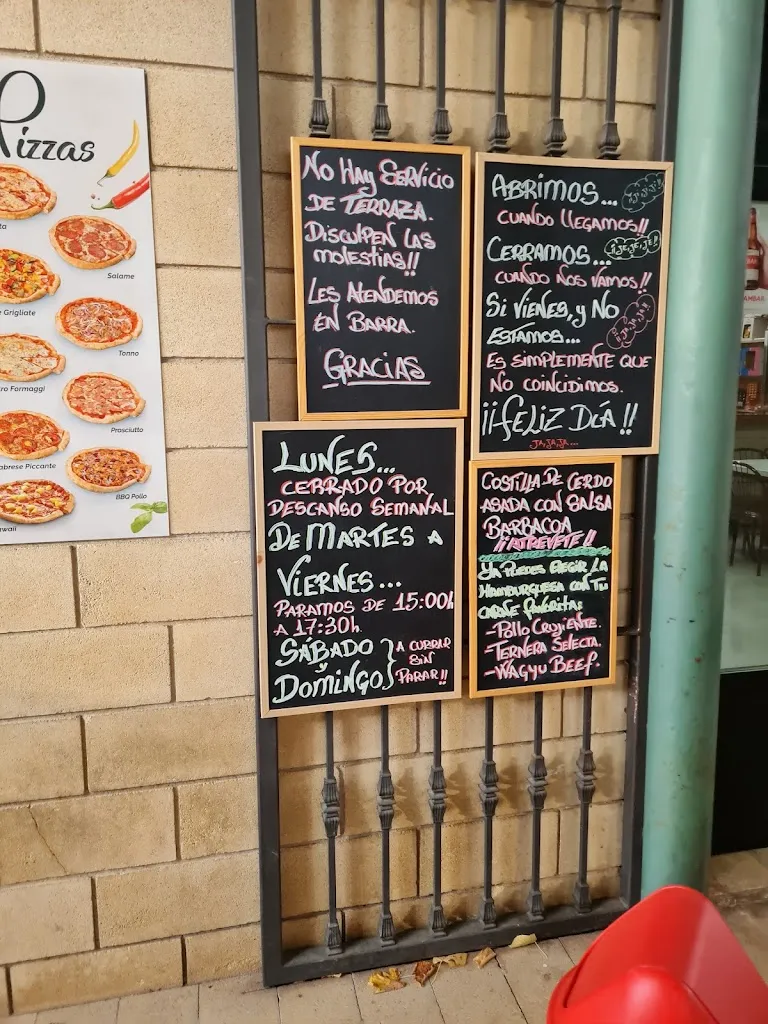 Pizzas
Salame
Grigliate
Tonno
Formaggi
Prosciutto
Piccante
BBQ Pollo
No Hay Servicio
de Terraza.
Disculpen las
molestias!!
Les Atendemos
en Barra.
Gracias
Abrimos...
¡¡JA,JA,JA!!
cuando llegamos!!
Cerramos...
¡¡JE,JE,JE!!
cuando nos vamos!!
Si vienes, y No
estamos...
¡¡JA,JA,JA!!
Es simplemente que
No coincidimos.
¡¡Feliz Día!!
JA,JA,JA...
Lunes...
cerrado por
descanso semanal
De Martes a
Viernes...
Paramos de 15:00h
a 17:30h.
Sábado
y
Domingo
A currar
sin
parar!!
Costilla de cerdo
asada con salsa
barbacoa
¡¡Atrevete!!
Ya puedes elegir la
Hamburguesa con tu
carne favorita:
-Pollo Crujiente.
-Ternera Selecta.
-Wagyu Beef.